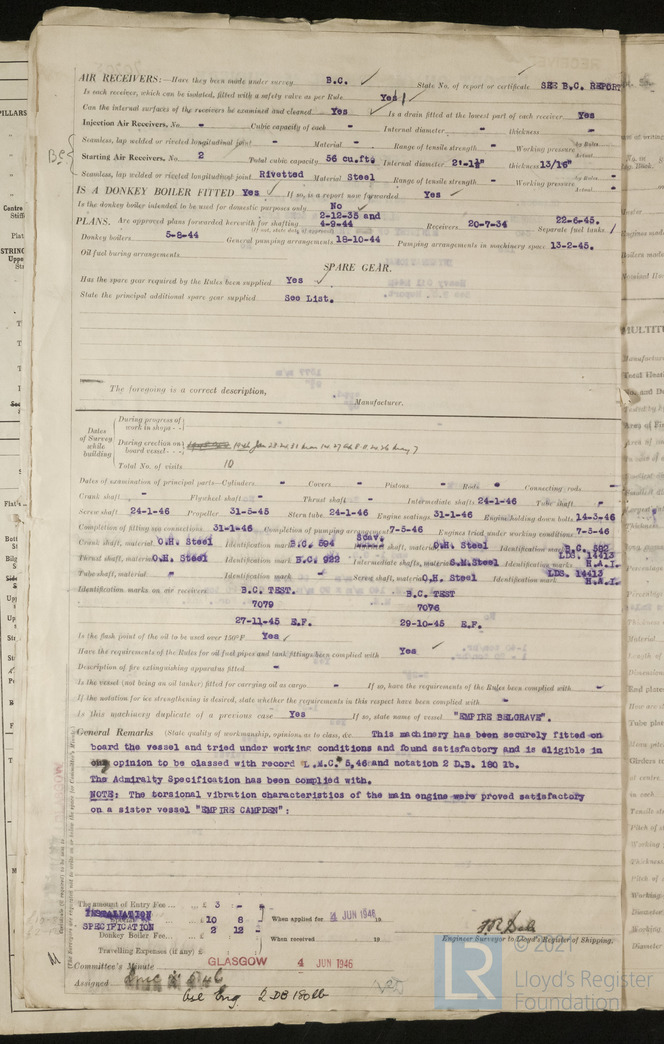 AIR RECEIVERS:—Have they been made under survey B.C. State No. of report or certificate SEE B.C. REPORT
Is each receiver, which can be isolated, fitted with a safety valve as per Rule Yes
Can the internal surfaces of the receivers be examined and cleaned Yes Is a drain fitted at the lowest part of each receiver Yes
Injection Air Receivers, No. - Cubic capacity of each - Internal diameter - thickness -
Seamless, lap welded or riveted longitudinal joint - Material - Range of tensile strength - Working pressure by Rules - Actual -
B.C. Starting Air Receivers, No. 2 Total cubic capacity 56 cu.ft. Internal diameter thickness 13/16"
Seamless, lap welded or riveted longitudinal joint Rivetted Material Steel Range of tensile strength - Working pressure by Rules - Actual -
IS A DONKEY BOILER FITTED Yes If so, is a report now forwarded Yes
Is the donkey boiler intended to be used for domestic purposes only No
PLANS. Are approved plans forwarded herewith for shafting 2-12-35 and 4-9-44 Receivers 20-7-34 Separate fuel tanks 22-6-45.
(If not, state date of approval)
Donkey boilers 5-8-44 General pumping arrangements 18-10-44 Pumping arrangements in machinery space 13-2-45.
Oil fuel burning arrangements
SPARE GEAR.
Has the spare gear required by the Rules been supplied Yes
State the principal additional spare gear supplied See List.
The foregoing is a correct description,
Manufacturer.
Dates of Survey while building
During progress of work in shops - -
During erection on board vessel - - -
Total No. of visits 10
Dates of examination of principal parts—Cylinders - Covers - Pistons - Rods - Connecting rods -
Crank shaft - Flywheel shaft - Thrust shaft - Intermediate shafts 24-1-46 Tube shaft -
Screw shaft 24-1-46 Propeller 31-5-45 Stern tube 24-1-46 Engine seatings 31-1-46 Engine holding down bolts 14-3-46
Completion of fitting sea connections 31-1-46 Completion of pumping arrangements 7-5-46 Engines tried under working conditions 7-5-46
Crank shaft, material O.H. Steel Identification mark B.C. 594 Scav. shaft, material O.H. Steel Identification mark B.C. 582
Thrust shaft, material O.H. Steel Identification mark B.C. 922 Intermediate shafts, material S.M.Steel Identification marks LDS. 14413 H.A.I.
Tube shaft, material - Identification mark - Screw shaft, material O.H. Steel Identification mark LDS. 14413 H.A.I.
Identification marks on air receivers B.C. TEST. B.C. TEST
7079 7076
27-11-45 E.F. 29-10-45 E.F.
Is the flash point of the oil to be used over 150°F Yes
Have the requirements of the Rules for oil fuel pipes and tank fittings been complied with Yes
Description of fire extinguishing apparatus fitted -
Is the vessel (not being an oil tanker) fitted for carrying oil as cargo - If so, have the requirements of the Rules been complied with -
If the notation for ice strengthening is desired, state whether the requirements in this respect have been complied with -
Is this machinery duplicate of a previous case Yes If so, state name of vessel "EMPIRE BELGRAVE".
General Remarks (State quality of workmanship, opinions as to class, &c. This machinery has been securely fitted on
board the vessel and tried under working conditions and found satisfactory and is eligible in
our opinion to be classed with record L.M.C. 5,46 and notation 2 D.B. 180 lb.
The Admiralty Specification has been complied with.
NOTE: The torsional vibration characteristics of the main engine were proved satisfactory
on a sister vessel "EMPIRE CAMPDEN":
The amount of Entry Fee ... £ 3 -
INSTALLATION 10 8 When applied for 4 JUN 1946 19
SPECIFICATION 2 12
Donkey Boiler Fee... £
Travelling Expenses (if any) £ When received 19
Engineer Surveyor to Lloyd's Register of Shipping.
Committee's Minute GLASGOW 4 JUN 1946
Assigned
Oil Eng. 2 DB 180 lb
© 2021
LR
Lloyd's Register
Foundation